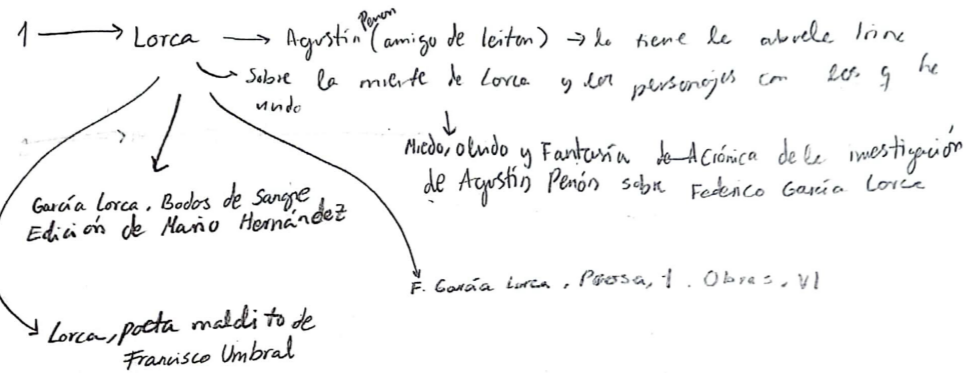 1 → Lorca → Agustín Penón (amigo de leiton) → lo tiene la abuela Irine
→ Sobre la muerte de Lorca y los personajes con los q he
↓
Miedo, olvido y Fantasía de A Crónica de la investigación
de Agustín Penón sobre Federico García Lorca
García Lorca, Bodas de Sangre
Edición de Mario Hernández
F. García Lorca, Prosa, 1. Obras, VI
Lorca, poeta maldito de
Francisco Umbral